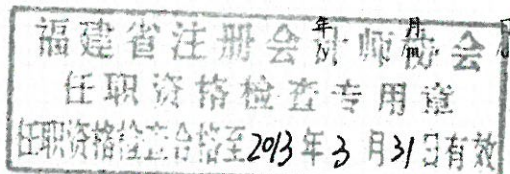 年 月
/y /m
福建省注册会计师协会
任职资格检查专用章
任职资格检查合格至2013年3月31日有效